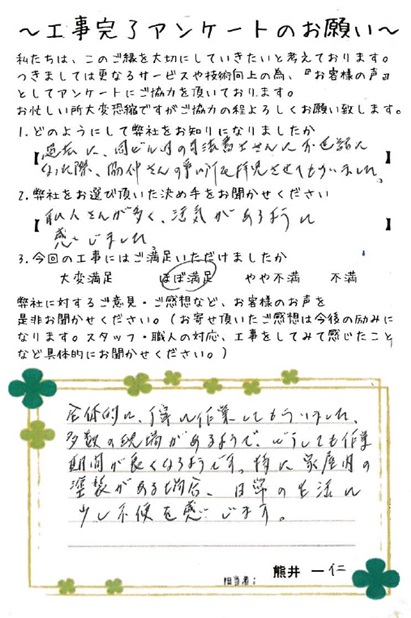 ～工事完了アンケートのお願い～
私たちは、このご縁を大切にしていきたいと考えております。
つきましては更なるサービスや技術向上の為、『お客様の声』
としてアンケートにご協力を頂いております。
お忙しい所大変恐縮ですがご協力の程よろしくお願い致します。
1.どのようにして弊社をお知りになりましたか
【過去に、同ビル内の司法書士さんにお世話に
なった際、
】
2.弊社をお選び頂いた決め手をお聞かせください
【職人さんが多く、活気があるように
感じました
】
3.今回の工事にはご満足いただけましたか
大変満足 ほぼ満足 やや不満 不満
弊社に対するご意見・ご感想など、お客様のお声を
是非お聞かせください。(お寄せ頂いたご感想は今後の励みに
なります。スタッフ・職人の対応、工事をしてみて感じたこと
など具体的にお聞かせください。)
全体的に、丁寧に作業してもらいました。
多数の現場があるようで、どうしても作業
期間が長くなるようです。特に家屋内の
塗装がある場合、日常の生活に
少し不便を感じます。
担当者: 熊井 一仁